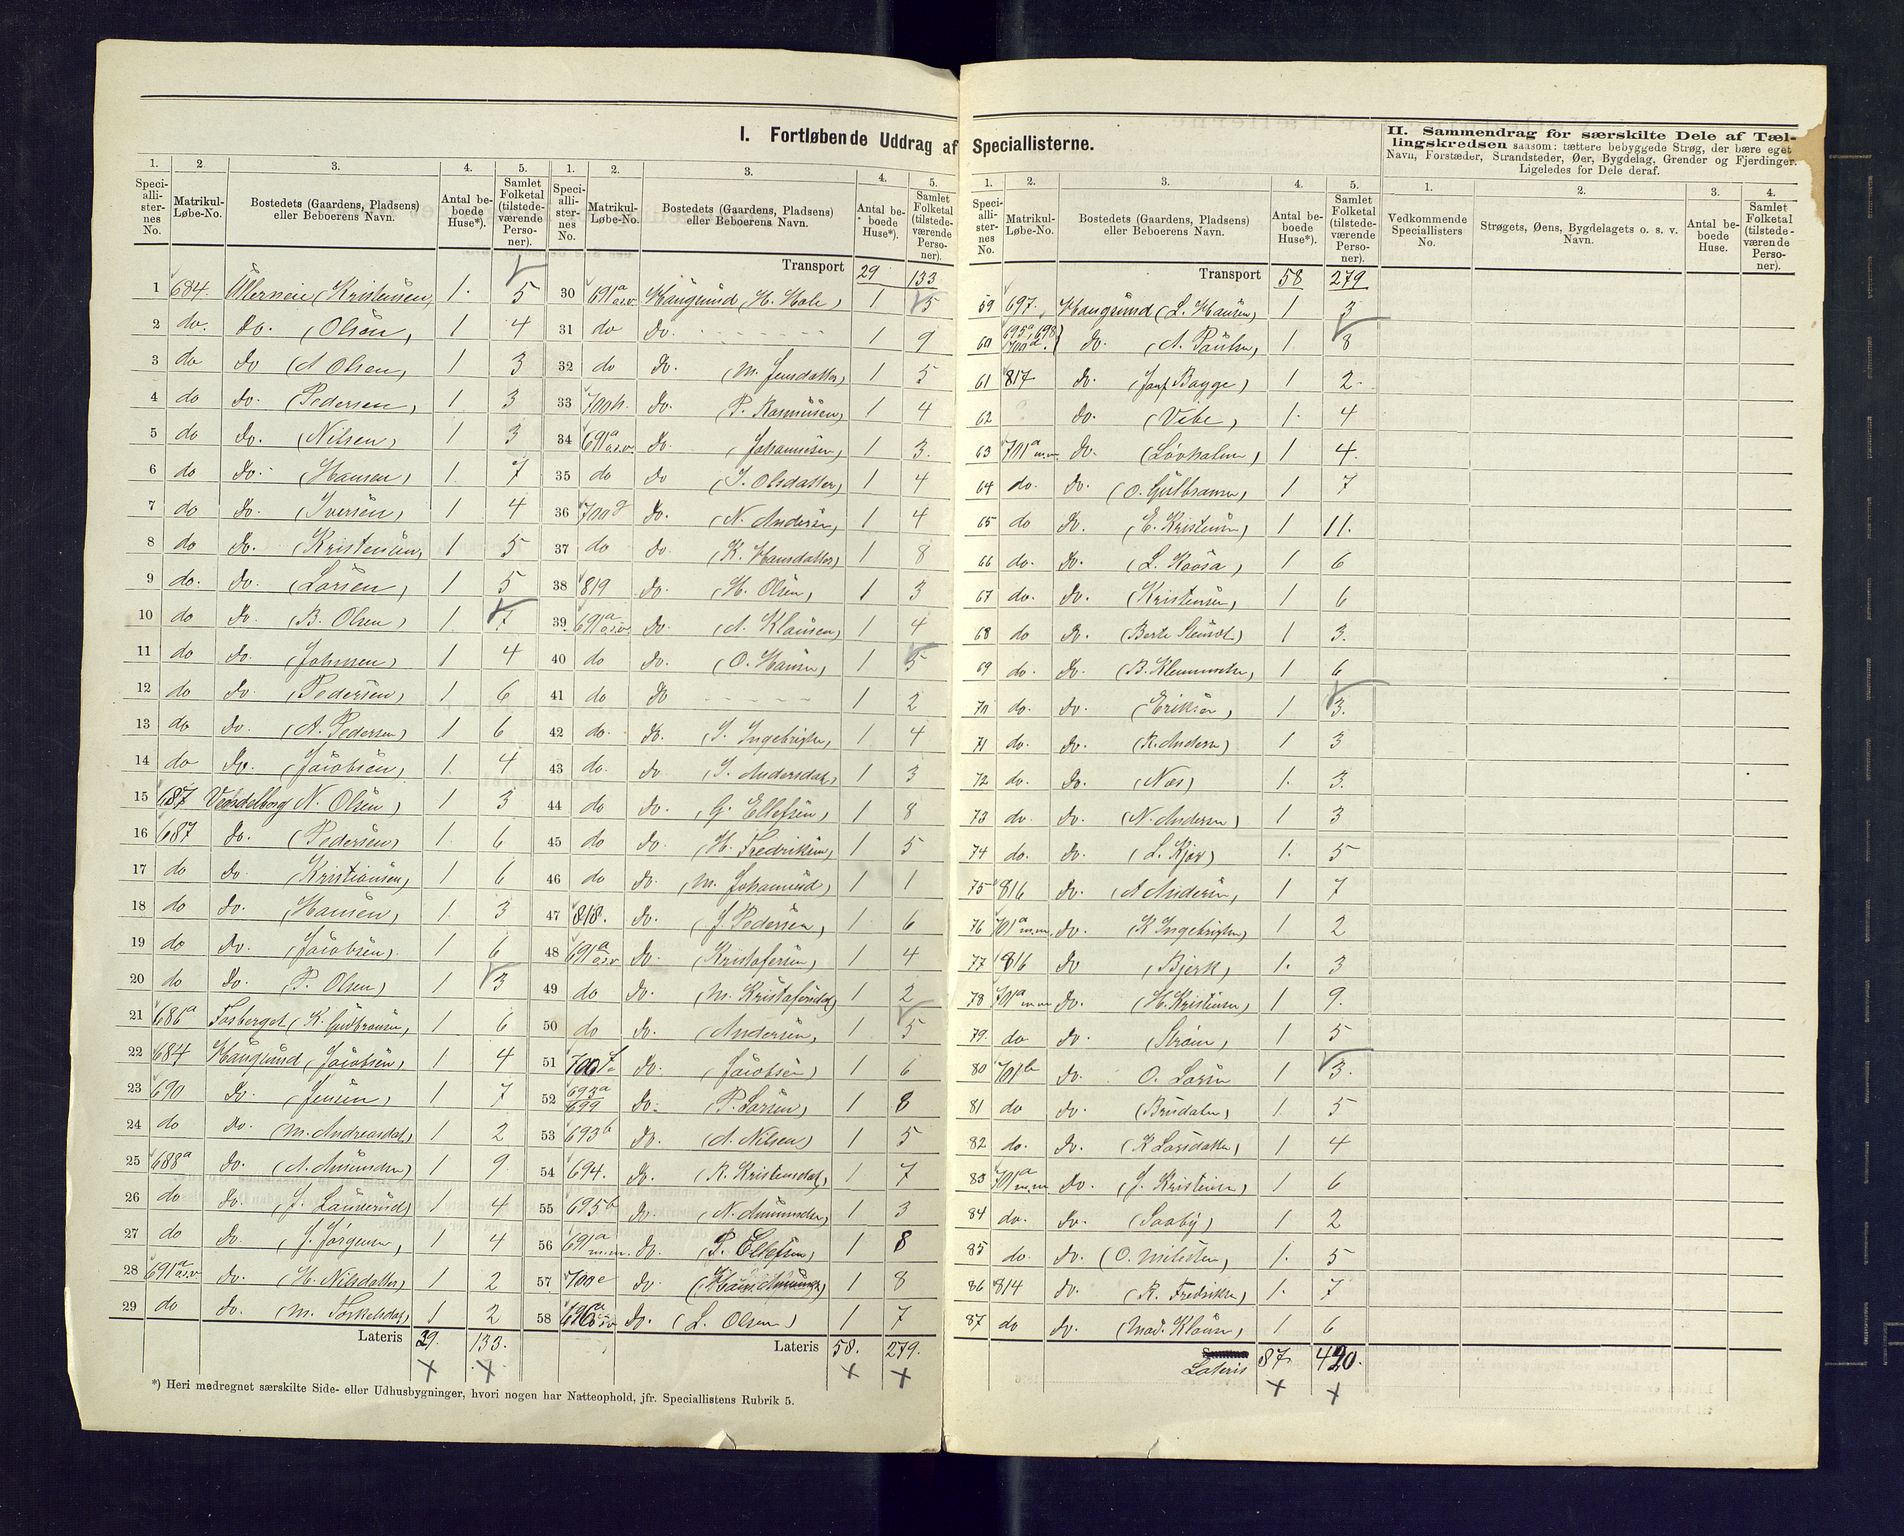 I. Fortløbende Uddrag af Speciallisterne.
1. 2. 3. 4. 5.
Speciallisternes No. Matrikul-Løbe-No. Bostedets (Gaardens, Pladsens) eller Beboerens Navn. Antal beboede Huse*). Samlet Folketal (tilstedeværende Personer).
1 684. (Kristensen) 1. 5
2 do. Do. (Olsen) 1 4
3 do Do (A Olsen) 1 3
4 do Do. (Pedersen) 1 3
5 do Do. (Nilsen) 1 3
6 do Do. (Hansen) 1. 7
7 do Do. (Iversen) 1 4
8 do Do. (Kristensen) 1 5
9 do. Do. (Larsen) 1 5
10 do Do. (B. Olsen) 1 7
11 do Do. (Johnsen) 1 4
12 do Do. (Pedersen) 1 6
13 do Do. (A. Pedersen) 1 6
14 do Do. (Jacobsen) 1. 4
15 687 Vendelborg N. Olsen) 1 3
16 687 Do. (Pedersen) 1. 6
17 do Do. (Kristiansen) 1 6
18 do Do. (Hansen) 1. 3
19 do Do. (Jacobsen) 1. 6
20 do Do. (P. Olsen) 1 3
21 686a Fosberget (K. Gudbransen) 1 6
22 684 Haugsund (Jacobsen) 1 4
23 690 Do. (Jensen) 1 7
24 do Do. (M. Andreasdat) 1 2
25 688a Do. (A. Amundsen) 1 9
26 do Do. (J. Lauderud) 1 4
27 do Do. (J. Jørgensen) 1 4
28 691a o.s.v Do. (H. Nilsdatter) 1 2
29 do Do. (M. Torkelsdat) 1 2
Lateris 29. 133.
*) Heri medregnet særskilte Side- eller Udhusbygninger, hvori nogen har Natteophold, jfr. Speciallistens Rubrik 5.
1. 2. 3. 4. 5.
Speciallisternes No. Matrikul-Løbe-No. Bostedets (Gaardens, Pladsens) eller Beboerens Navn. Antal beboede Huse*). Samlet Folketal (tilstedeværende Personer).
Transport 29 133
30 691a o.s.v. Haugsund (H. Hole) 1 5
31 do Do. 1 9
32 do Do. (M. Jensdatter) 1 5
33 700h. Do. (P. Rasmusen) 1 4
34 691a o.s.v. Do (Johannesen) 1 3.
35 do Do (I. Olsdatter) 1 4
36 700g Do. (N. Andersen) 1 4
37 do Do (K. Hansdatter) 1 8
38 819 Do. (H. Olsen) 1 3
39 691a o.s.v. Do. (A. Klausen) 1 4
40 do Do. (O. Hansen) 1 5
41 do Do 1 2
42 do. Do. (I. Ingebrigtsn) 1 4
43 do. Do (I. Andersdat) 1 3
44 do Do. (G. Ellefsen) 1 8
45 do Do. (H. Fredriksen) 1 5
46 do Do. (M. Johannesd) 1 1
47 818. Do. (J. Pedersen) 1. 6
48 691a o.s.v Do. (Kristofersen) 1 4
49 do Do. (M. Kristofersdat) 1 2
50 do Do. (Andersen) 1 5
51 700f. Do. (Jacobsen) 1 6
52 693a 699 Do. (P. Larsen) 1 8
53 693b Do. (A. Nilsen) 1 5
54 694. Do. (R. Kristensdat) 1 7
55 695b Do. (N. Amundsen) 1 3
56 691a m.m. Do. (P. Ellefsen) 1 8
57 700e Do 1 8
58 696a o.s.v Do. (L. Olsen) 1 7
Lateris 58. 279.
1. 2. 3. 4. 5.
Speciallisternes No. Matrikul-Løbe-No. Bostedets (Gaardens, Pladsens) eller Beboerens Navn. Antal beboede Huse*). Samlet Folketal (tilstedeværende Personer).
Transport 58 279
59 697. Haugsund (L. Hansen) 1 3
60 695a, 698 700d. Do. (A. Paulsen) 1 8
61 817 Do. (Bagge) 1 2.
62 Do. (Vebe) 1. 4
63 701a m.m. Do. (Løvhalm) 1 4.
64 do. Do. (O. Gulbransen) 1 7
65 do Do. (E. Kristensen) 1 11.
66 do. Do. (L. Kaasa) 1 6
67 do. Do. (Kristensen) 1 6
68 do Do. (Berte) 1 3.
69 do Do. (B. Klemmetsen) 1 6
70 do. Do. (Eriksen) 1 3.
71 do. Do. (R. Andersen) 1 3
72 do. Do. (Næs) 1. 3.
73 do. Do. (N. Andersen) 1 3
74 do. Do. (L. Kjær) 1. 5
75 816 Do. (A Andersen) 1 7
76 701a m.m. Do. (K Ingebrigtsn) 1 2
77 816 Do (Bjerk) 1. 3
78 701a m.m Do. (H. Kristensen) 1 9.
79. do Do. (Strøm) 1 5
80 701b Do. O. Larsen 1 3.
81 do Do. (Brudalen) 1. 5
82 do. Do. (K Larsdatter) 1 4
83 701a m.m Do. (J. Kristensen) 1 6
84 do. Do. (Saaby) 1 2
85 do. Do. (O. Milesten) 1. 5
86 814 Do. (R. Fredriksen) 1. 7
87 do Do. (Mad. Klausen) 1 6
Lateris 87. 420.
II. Sammendrag for særskilte Dele af Tællingskredsen saasom: tættere bebyggede Strøg, der bære eget
Navn, Forstæder, Strandsteder, Øer, Bygdelag, Grender og Fjerdinger.
Ligeledes for Dele deraf.
1. 2. 3. 4.
Vedkommende Speciallisters No. Strøgets, Øens, Bygdelagets o. s. v. Navn. Antal beboede Huse. Samlet Folketal (tilstedeværende Personer).